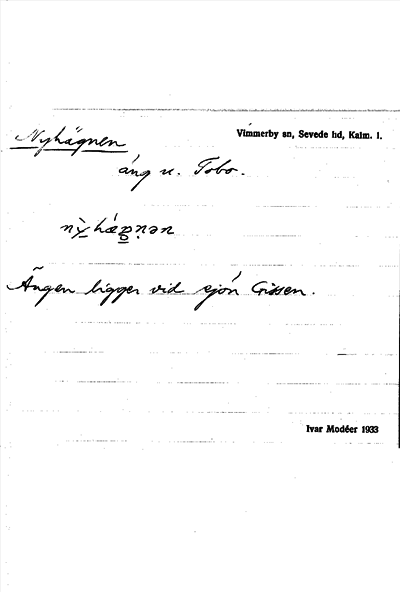 Nyhägnen
Vimmerby sn, Sevede hd, Kalm. l.
äng u. Tobo.
Ängen ligger vid sjön Grissen.
Ivar Modéer 1933